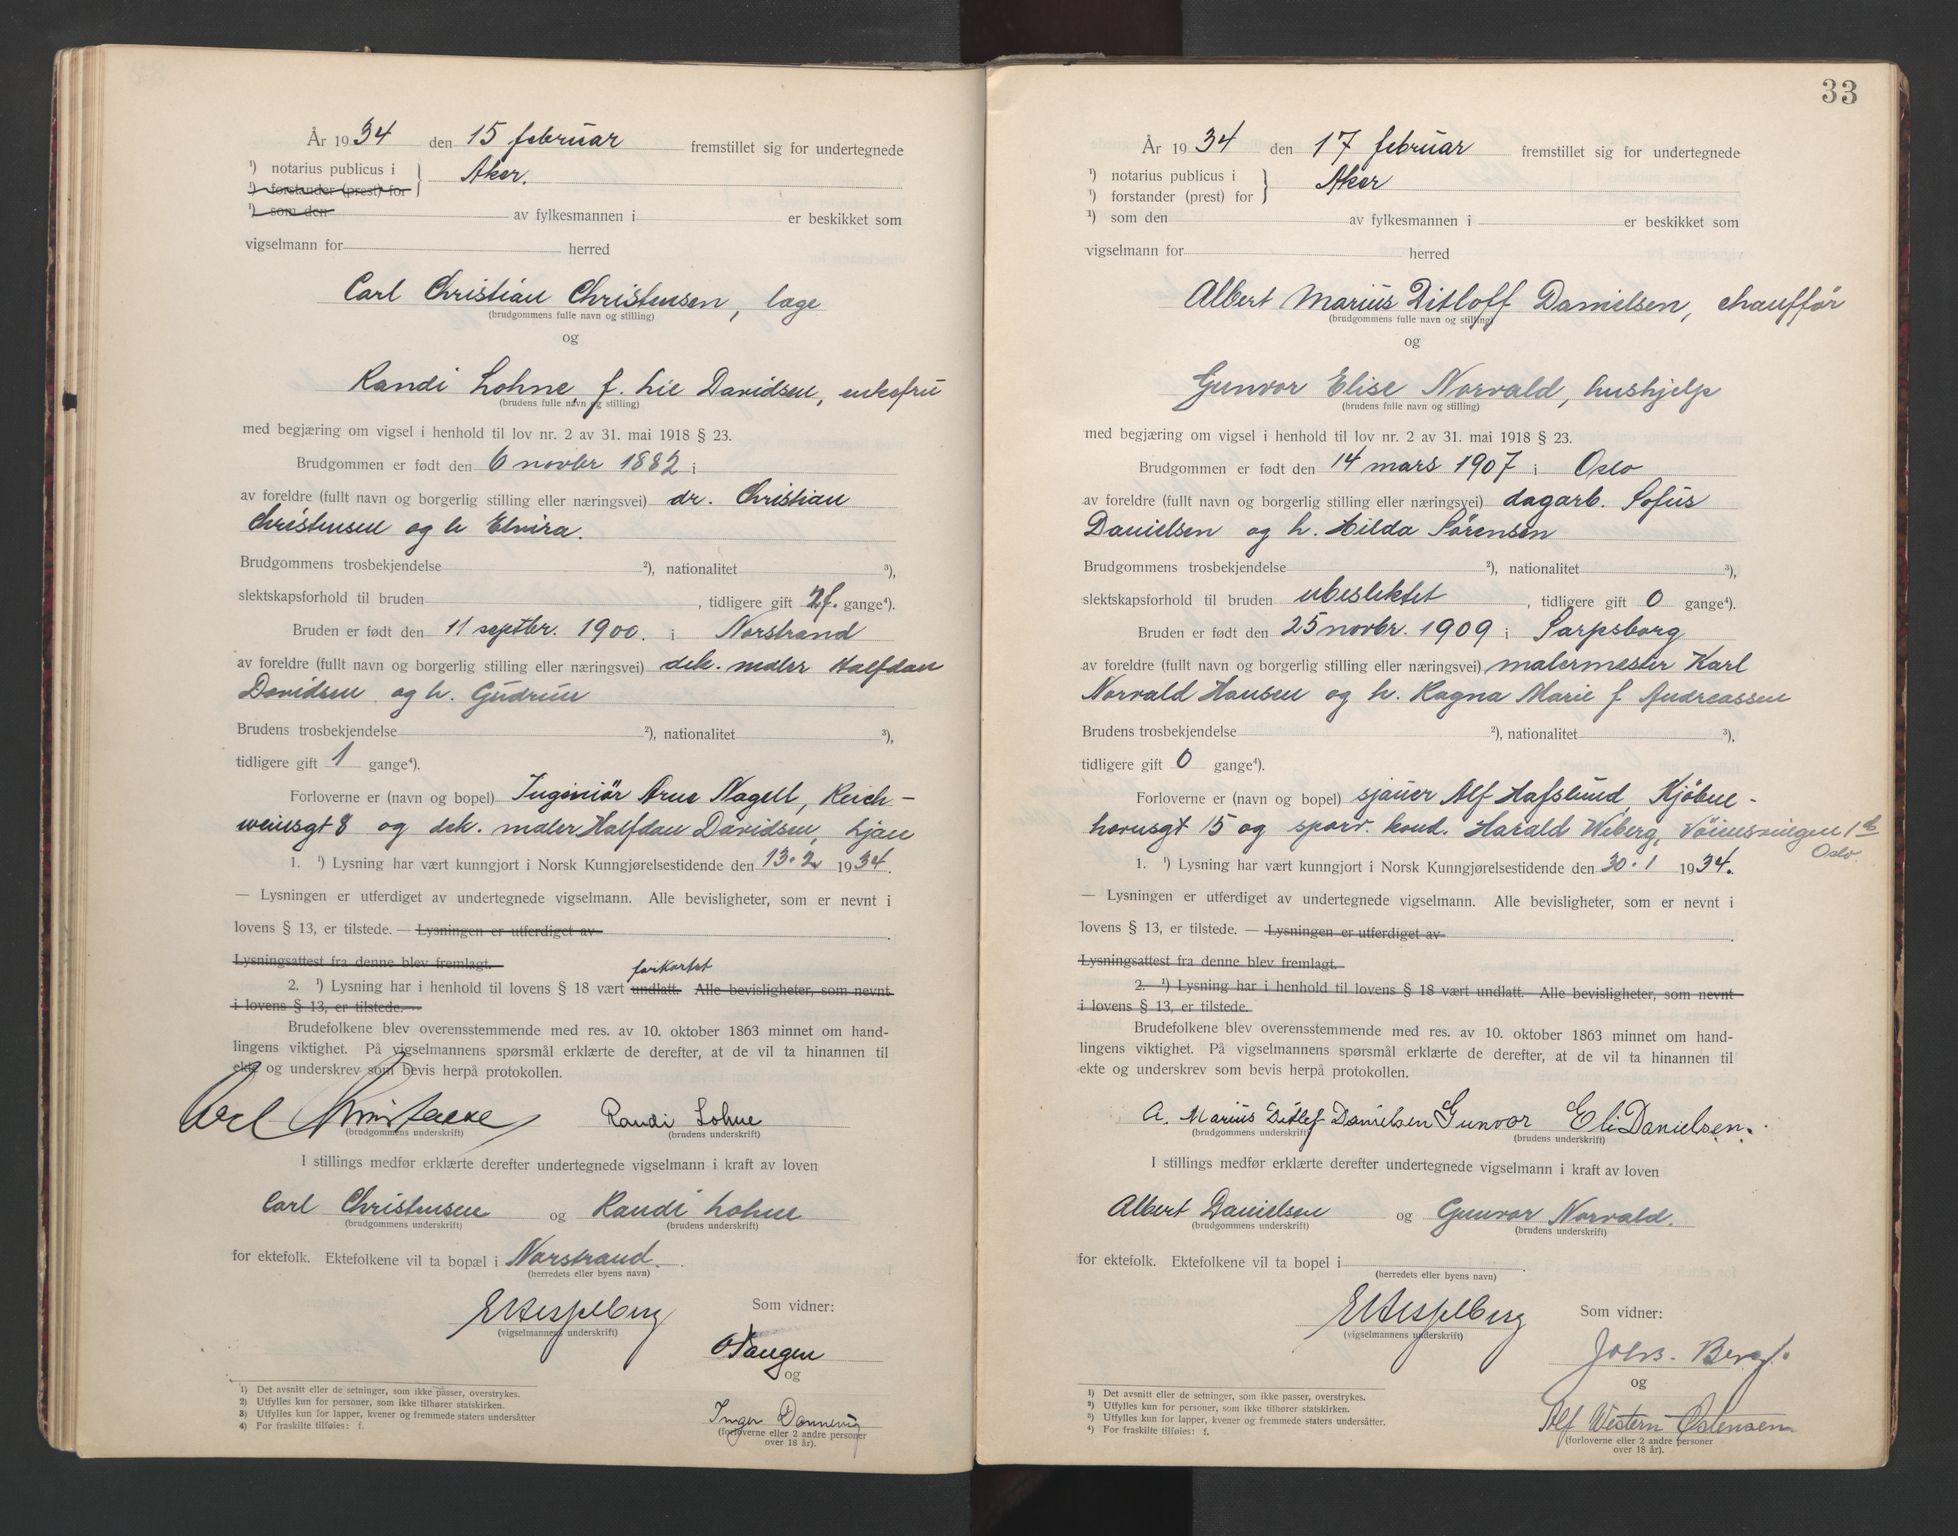 År 1934 den 15 februar fremstillet sig for undertegnede
¹) notarius publicus i
¹) forstander (prest) for } Aker.
¹) som den av fylkesmannen i er beskikket som
vigselmann for herred
Carl Christian Christensen, læge
(brudgommens fulle navn og stilling)
og
Randi Lohne, f. Lie Davidsen, enkefru
(brudens fulle navn og stilling)
med begjæring om vigsel i henhold til lov nr. 2 av 31. mai 1918 § 23.
Brudgommen er født den 6 novbr 1882 i
av foreldre (fullt navn og borgerlig stilling eller næringsvei) dr. Christian
Christensen og h Elvira.
Brudgommens trosbekjendelse ²), nationalitet ³),
slektskapsforhold til bruden , tidligere gift 2f. gange⁴).
Bruden er født den 11 septbr. 1900. i Norstrand
av foreldre (fullt navn og borgerlig stilling eller næringsvei) dek. maler Halfdan
Davidsen og h. Gudrun
Brudens trosbekjendelse ²), nationalitet ³),
tidligere gift 1 gange⁴).
Forloverne er (navn og bopel) Ingeniör Arne Nagell, Reich-
weinsgt 8 og dek. maler Halfdan Davidsen, Ljan
1. ¹) Lysning har vært kunngjort i Norsk Kunngjørelsestidende den 13.2 1934.
— Lysningen er utferdiget av undertegnede vigselmann. Alle bevisligheter, som er nevnt i
lovens § 13, er tilstede. — Lysningen er utferdiget av
Lysningsattest fra denne blev fremlagt.
forkortet
2. ¹) Lysning har i henhold til lovens § 18 vært undlatt. Alle bevisligheter, som nevnt
i lovens § 13, er tilstede.
Brudefolkene blev overensstemmende med res. av 10. oktober 1863 minnet om hand-
lingens viktighet. På vigselmannens spørsmål erklærte de derefter, at de vil ta hinannen til
ekte og underskrev som bevis herpå protokollen.
Carl Christensen Randi Lohne
(brudgommens underskrift) (brudens underskrift)
I stillings medfør erklærte derefter undertegnede vigselmann i kraft av loven
Carl Christensen og Randi Lohne
(brudgommens underskrift) (brudens underskrift)
for ektefolk. Ektefolkene vil ta bopæl i Norstrand.
(herredets eller byens navn)
Som vidner:
(vigselmannens underskrift)
og
Inger Dannevig
(forloverne eller 2 andre personer
over 18 år).
1) Det avsnitt eller de setninger, som ikke passer, overstrykes.
2) Utfylles kun for personer, som ikke tilhører statskirken.
3) Utfylles kun for lapper, kvener og fremmede staters undersåtter
4) For fraskilte tilføies: f.

33
År 1934 den 17 februar fremstillet sig for undertegnede
¹) notarius publicus i
¹) forstander (prest) for } Aker
¹) som den av fylkesmannen i er beskikket som
vigselmann for herred
Albert Marius Ditloff Danielsen, chauffør
(brudgommens fulle navn og stilling)
og
Gunvor Elise Norvald, hushjelp
(brudens fulle navn og stilling)
med begjæring om vigsel i henhold til lov nr. 2 av 31. mai 1918 § 23.
Brudgommen er født den 14 mars 1907 i Oslo
av foreldre (fullt navn og borgerlig stilling eller næringsvei) dagarb. Sofus
Danielsen og h. Hilda Sörensen
Brudgommens trosbekjendelse ²), nationalitet ³),
slektskapsforhold til bruden ubeslektet , tidligere gift 0 gange⁴).
Bruden er født den 25 novbr. 1909 i Sarpsborg
av foreldre (fullt navn og borgerlig stilling eller næringsvei) malermester Karl
Norvald Hansen og h. Ragna Marie f Andreassen
Brudens trosbekjendelse ²), nationalitet ³),
tidligere gift 0 gange⁴).
Forloverne er (navn og bopel) sjauer Alf Hafslund, Kjöben-
havnsgt 15 og sporv. kond. Harald Weberg, Vöiensvingen 1b
Oslo.
1. ¹) Lysning har vært kunngjort i Norsk Kunngjørelsestidende den 30.1 1934.
— Lysningen er utferdiget av undertegnede vigselmann. Alle bevisligheter, som er nevnt i
lovens § 13, er tilstede. — Lysningen er utferdiget av
Lysningsattest fra denne blev fremlagt.
2. ¹) Lysning har i henhold til lovens § 18 vært undlatt. Alle bevisligheter, som nevnt
i lovens § 13, er tilstede.
Brudefolkene blev overensstemmende med res. av 10. oktober 1863 minnet om hand-
lingens viktighet. På vigselmannens spørsmål erklærte de derefter, at de vil ta hinannen til
ekte og underskrev som bevis herpå protokollen.
A. Marius Ditlef Danielsen Gunvor Eli Danielsen.
(brudgommens underskrift) (brudens underskrift)
I stillings medfør erklærte derefter undertegnede vigselmann i kraft av loven
Albert Danielsen og Gunvor Norvald.
(brudgommens underskrift) (brudens underskrift)
for ektefolk. Ektefolkene vil ta bopel i
(herredets eller byens navn)
Som vidner:
(vigselmannens underskrift)
Johs. Berg.
og
Alf Western Østensen
(forloverne eller 2 andre personer
over 18 år).
1) Det avsnitt eller de setninger, som ikke passer, overstrykes.
2) Utfylles kun for personer, som ikke tilhører statskirken.
3) Utfylles kun for lapper, kvener og fremmede staters undersåtter.
4) For fraskilte tilføies: f.